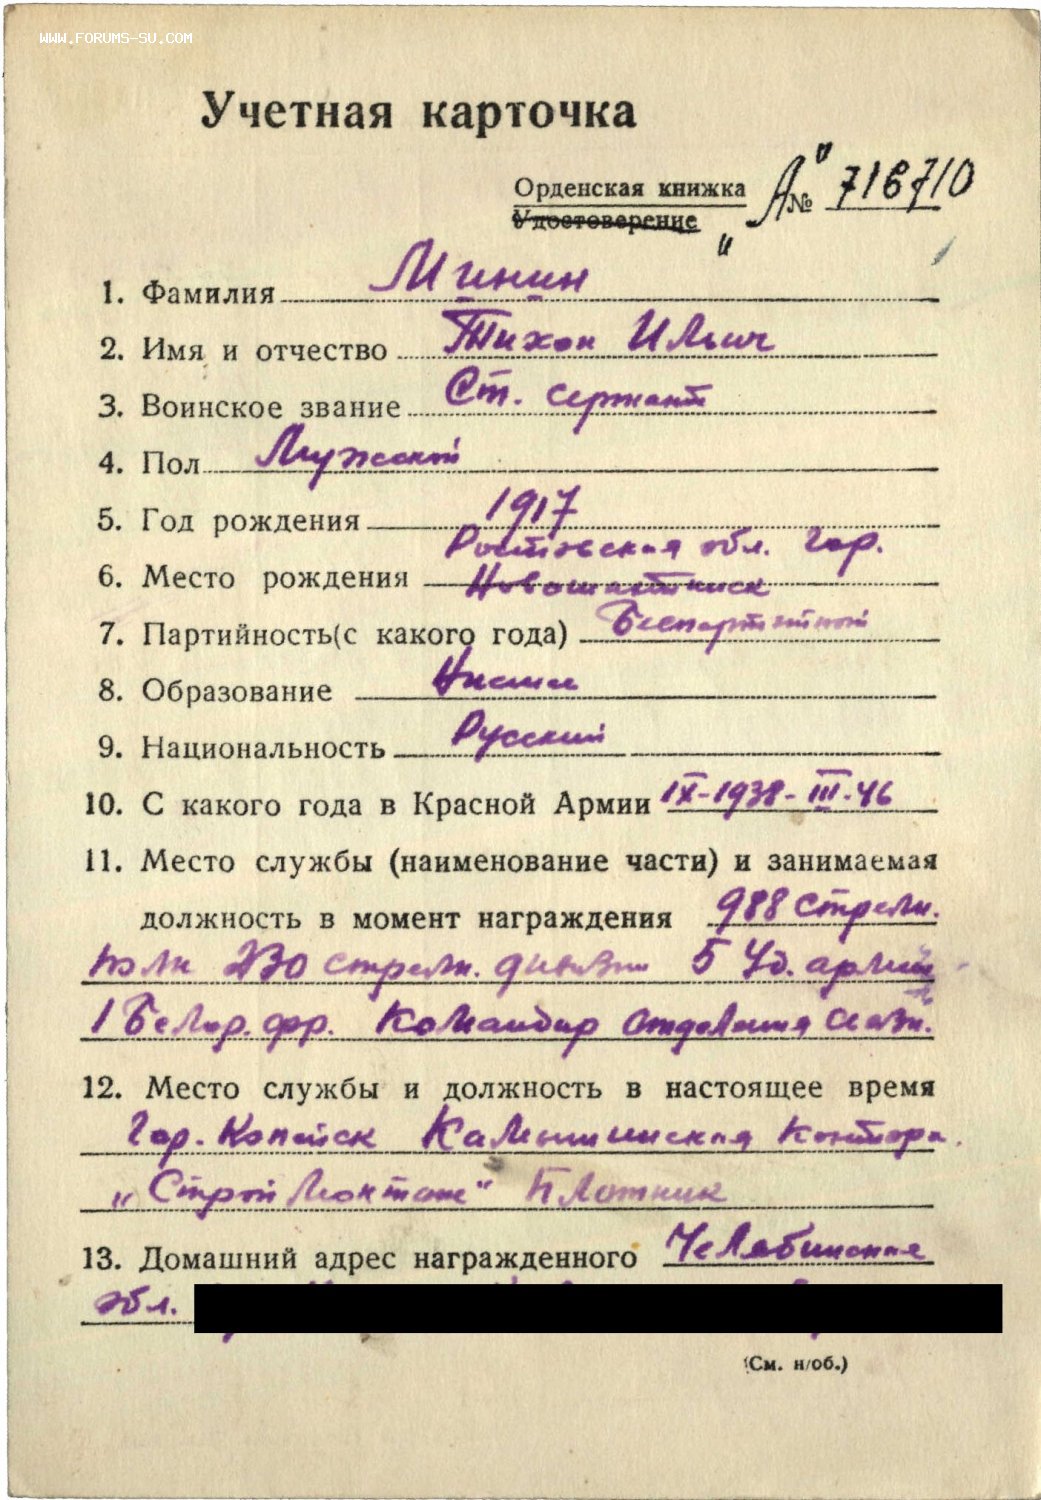 WWW.FORUMS-SU.COM
Учетная карточка
Орденская книжка
Удостоверение
"А" № 716710
1. Фамилия Минин
2. Имя и отчество Тихон Ильич
3. Воинское звание Ст. сержант
4. Пол Мужской
5. Год рождения 1917
Ростовская обл. Гор.
6. Место рождения Новошахтинск
7. Партийность(с какого года) Беспартийный
8. Образование Низшее
9. Национальность Русский
10. С какого года в Красной Армии IX-1938-III-46
11. Место службы (наименование части) и занимаемая
должность в момент награждения 988 стрелк.
полк 230 стрелк. дивизии 5 Уд. армии
1 Белор. фр. Командир отделения связи.
12. Место службы и должность в настоящее время
Гор. Копейск Контора
"Строй Монтаж" Плотник
13. Домашний адрес награжденного Челябинская
обл.
(См. н/об.)